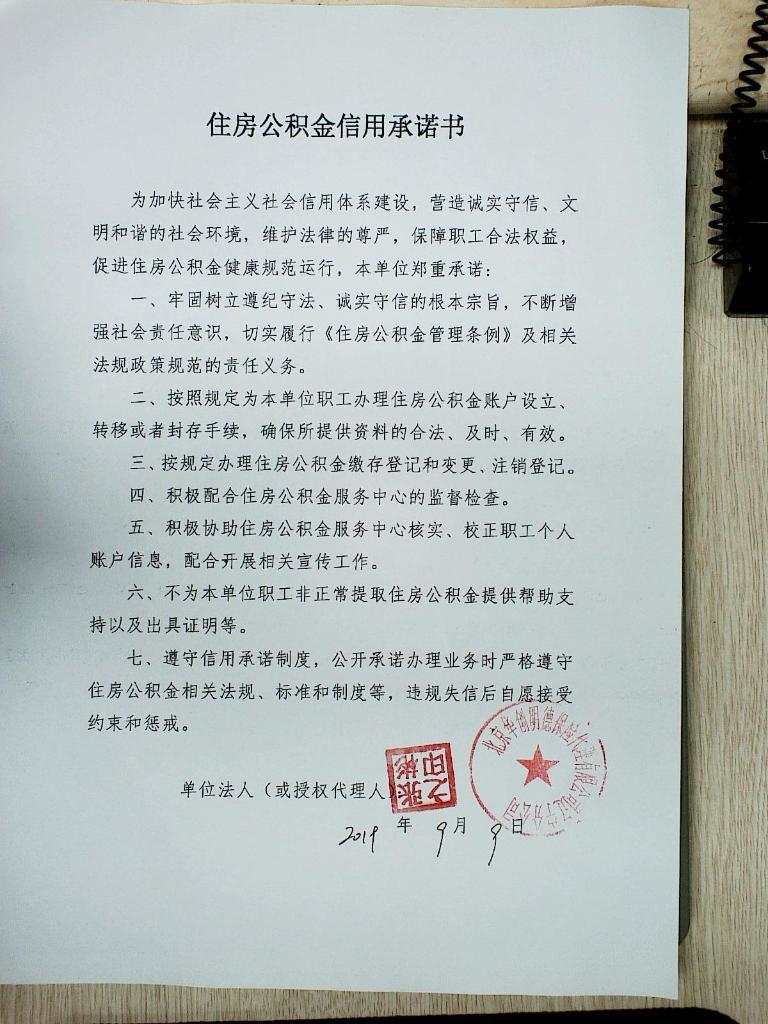 住房公积金信用承诺书
为加快社会主义社会信用体系建设，营造诚实守信、文
明和谐的社会环境，维护法律的尊严，保障职工合法权益，
促进住房公积金健康规范运行，本单位郑重承诺：
一、牢固树立遵纪守法、诚实守信的根本宗旨，不断增
强社会责任意识，切实履行《住房公积金管理条例》及相关
法规政策规范的责任义务。
二、按照规定为本单位职工办理住房公积金账户设立、
转移或者封存手续，确保所提供资料的合法、及时、有效。
三、按规定办理住房公积金缴存登记和变更、注销登记。
四、积极配合住房公积金服务中心的监督检查。
五、积极协助住房公积金服务中心核实、校正职工个人
账户信息，配合开展相关宣传工作。
六、不为本单位职工非正常提取住房公积金提供帮助支
持以及出具证明等。
七、遵守信用承诺制度，公开承诺办理业务时严格遵守
住房公积金相关法规、标准和制度等，违规失信后自愿接受
约束和惩戒。
单位法人（或授权代理人
张彬之印
北京华创明德保险代理有限公司辽宁分公司
2019年9月9日